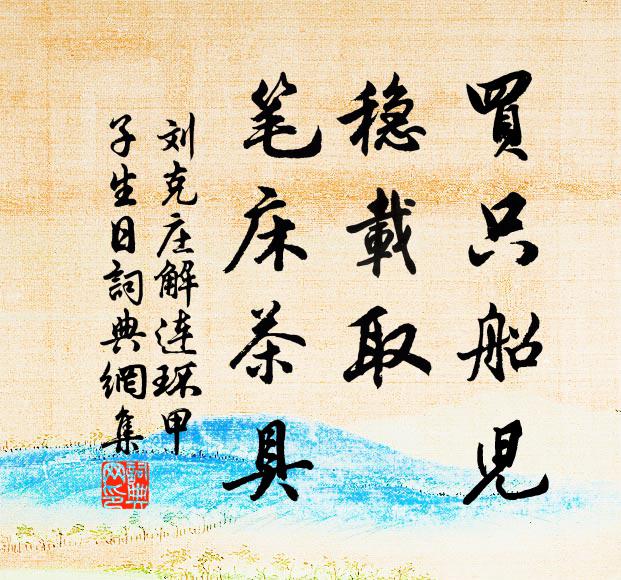 買只船兒
穏載取
笔床茶具
刘克庄解连环甲
子生日詞典網集